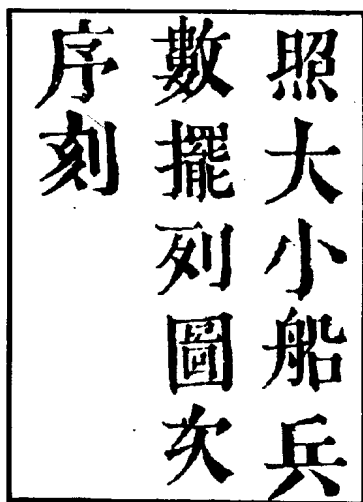 照大小船兵
數擺列圖次
序刻